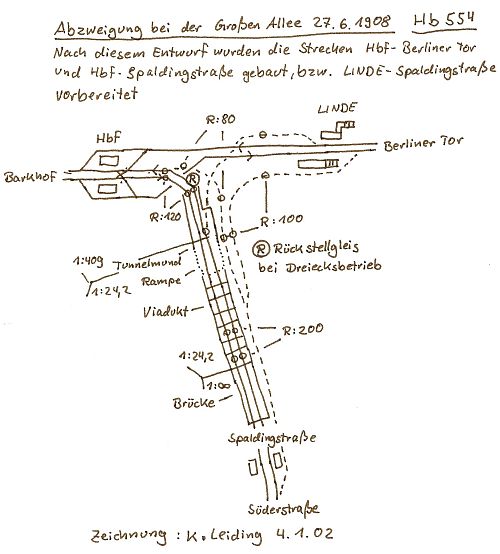 Abzweigung bei der Großen Allee 27.6.1908 Hb 554
Nach diesem Entwurf wurden die Strecken Hbf-Berliner Tor
und Hbf-Spaldingstraße gebaut, bzw. LINDE-Spaldingstraße
vorbereitet
LINDE
R:80
Hbf
Berliner Tor
Barkhof
R
R:120
R:100
R Rückstellgleis
bei Dreiecksbetrieb
1:409
Tunnelmund
Rampe
1:24,2
Viadukt
R:200
1:24,2
1:∞
Brücke
Spaldingstraße
Süderstraße
Zeichnung: K. Leiding 4.1.02